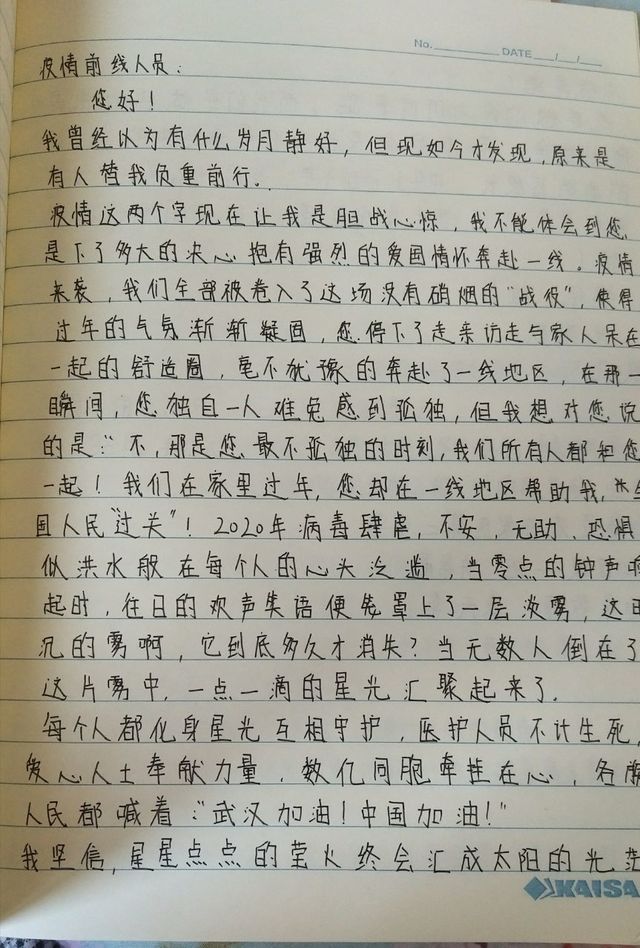 No. DATE / /
疫情前线人员:
您好!
我曾经以为有什么岁月静好,但现如今才发现,原来是
有人替我负重前行。
疫情这两个字现在让我是胆战心惊,我不能体会到您
是下了多大的决心抱有强烈的爱国情怀奔赴一线。疫情
来袭,我们全部被卷入了这场没有硝烟的“战役”,使得
过年的气氛渐渐凝固,您停下了走亲访走与家人呆在
一起的舒适圈,毫不犹豫的奔赴了一线地区,在那一
瞬间,您独自一人难免感到孤独,但我想对您说
的是:“不,那是您最不孤独的时刻,我们所有人都和您
一起!我们在家里过年,您却在一线地区帮助我,“全
国人民“过关”!2020年病毒肆虐,不安,无助,恐惧
似洪水般在每个人的心头泛滥,当零点的钟声响
起时,往日的欢声笑语便笼罩上了一层淡雾,这
沉的雾啊,它到底多久才消失?当无数人倒在了
这片雾中,一点一滴的星光汇聚起来了.
每个人都化身星光互相守护,医护人员不计生死,
爱心人士奉献力量,数亿同胞牵挂在心,各
人民都喊着:“武汉加油!中国加油!”
我坚信,星星点点的萤火终会汇成太阳的光芒
KAISA